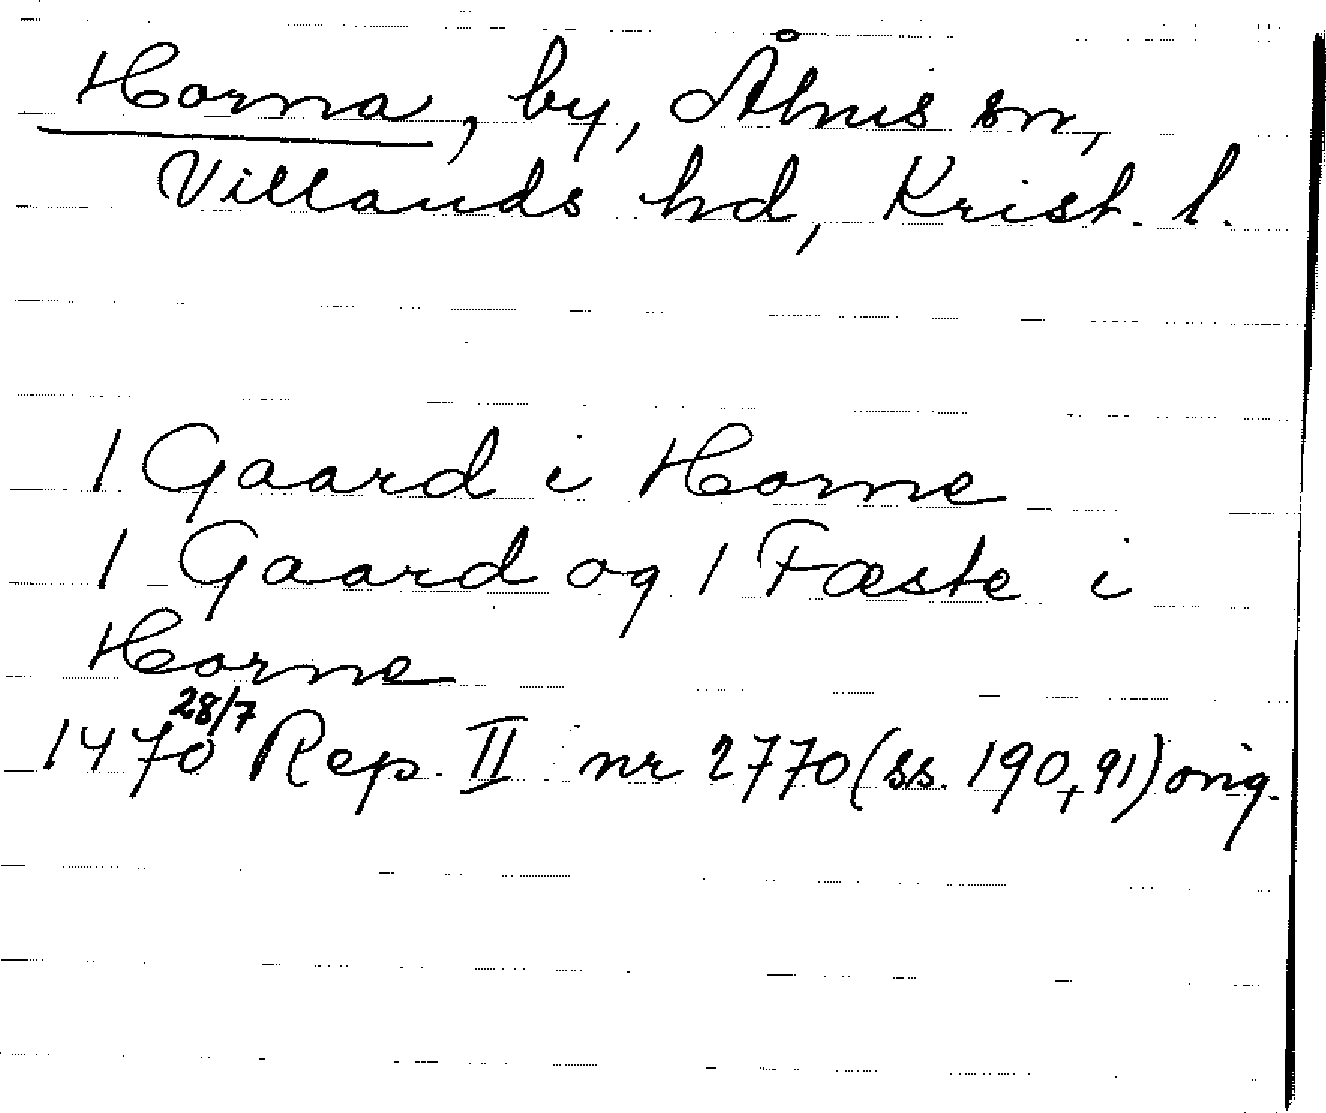 Horna, by, Åhus sn,
Villands hd, Krist. l.
1 Gaard i Horne
1 Gaard og 1 Fæste i
Horne
1470 28/7 Rep. II nr 2770 (ss. 190,91) orig.